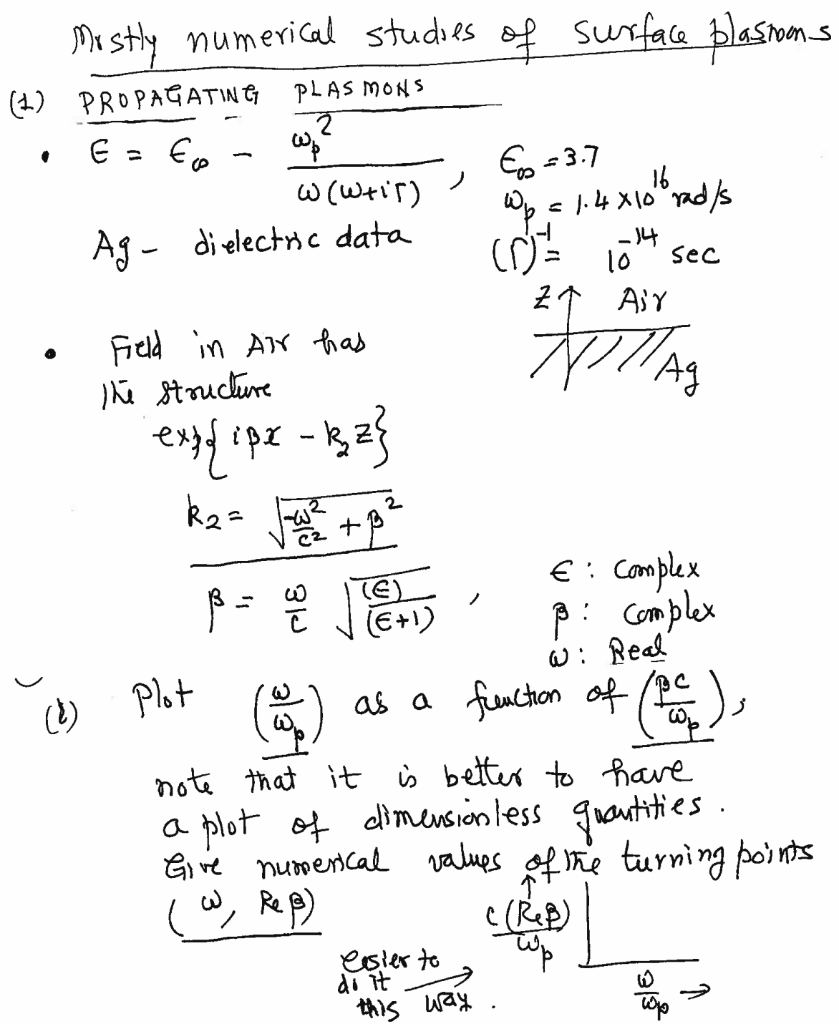 Mostly numerical studies of surface plasmons
(1) PROPAGATING PLASMONS
• ϵ = ϵ∞ − ωp² / ω(ω+iΓ) , ϵ∞ = 3.7
ωp = 1.4 × 10^16 rad/s
Ag - dielectric data (Γ)^-1 = 10^-14 sec
Z ↑ Air
Ag
• Field in Air has
the structure
exp{iβx − k₂z}
k₂ = √(−ω²/c² + β²)
β = ω/c √((ϵ)/(ϵ+1)) , ϵ : Complex
β : Complex
ω : Real
(i) Plot (ω/ωp) as a function of (βc/ωp),
note that it is better to have
a plot of dimensionless quantities.
Give numerical values of the turning points
(ω, Re β)
c(Re β)/ωp ↑
easier to
do it
this way. →
ω/ωp →